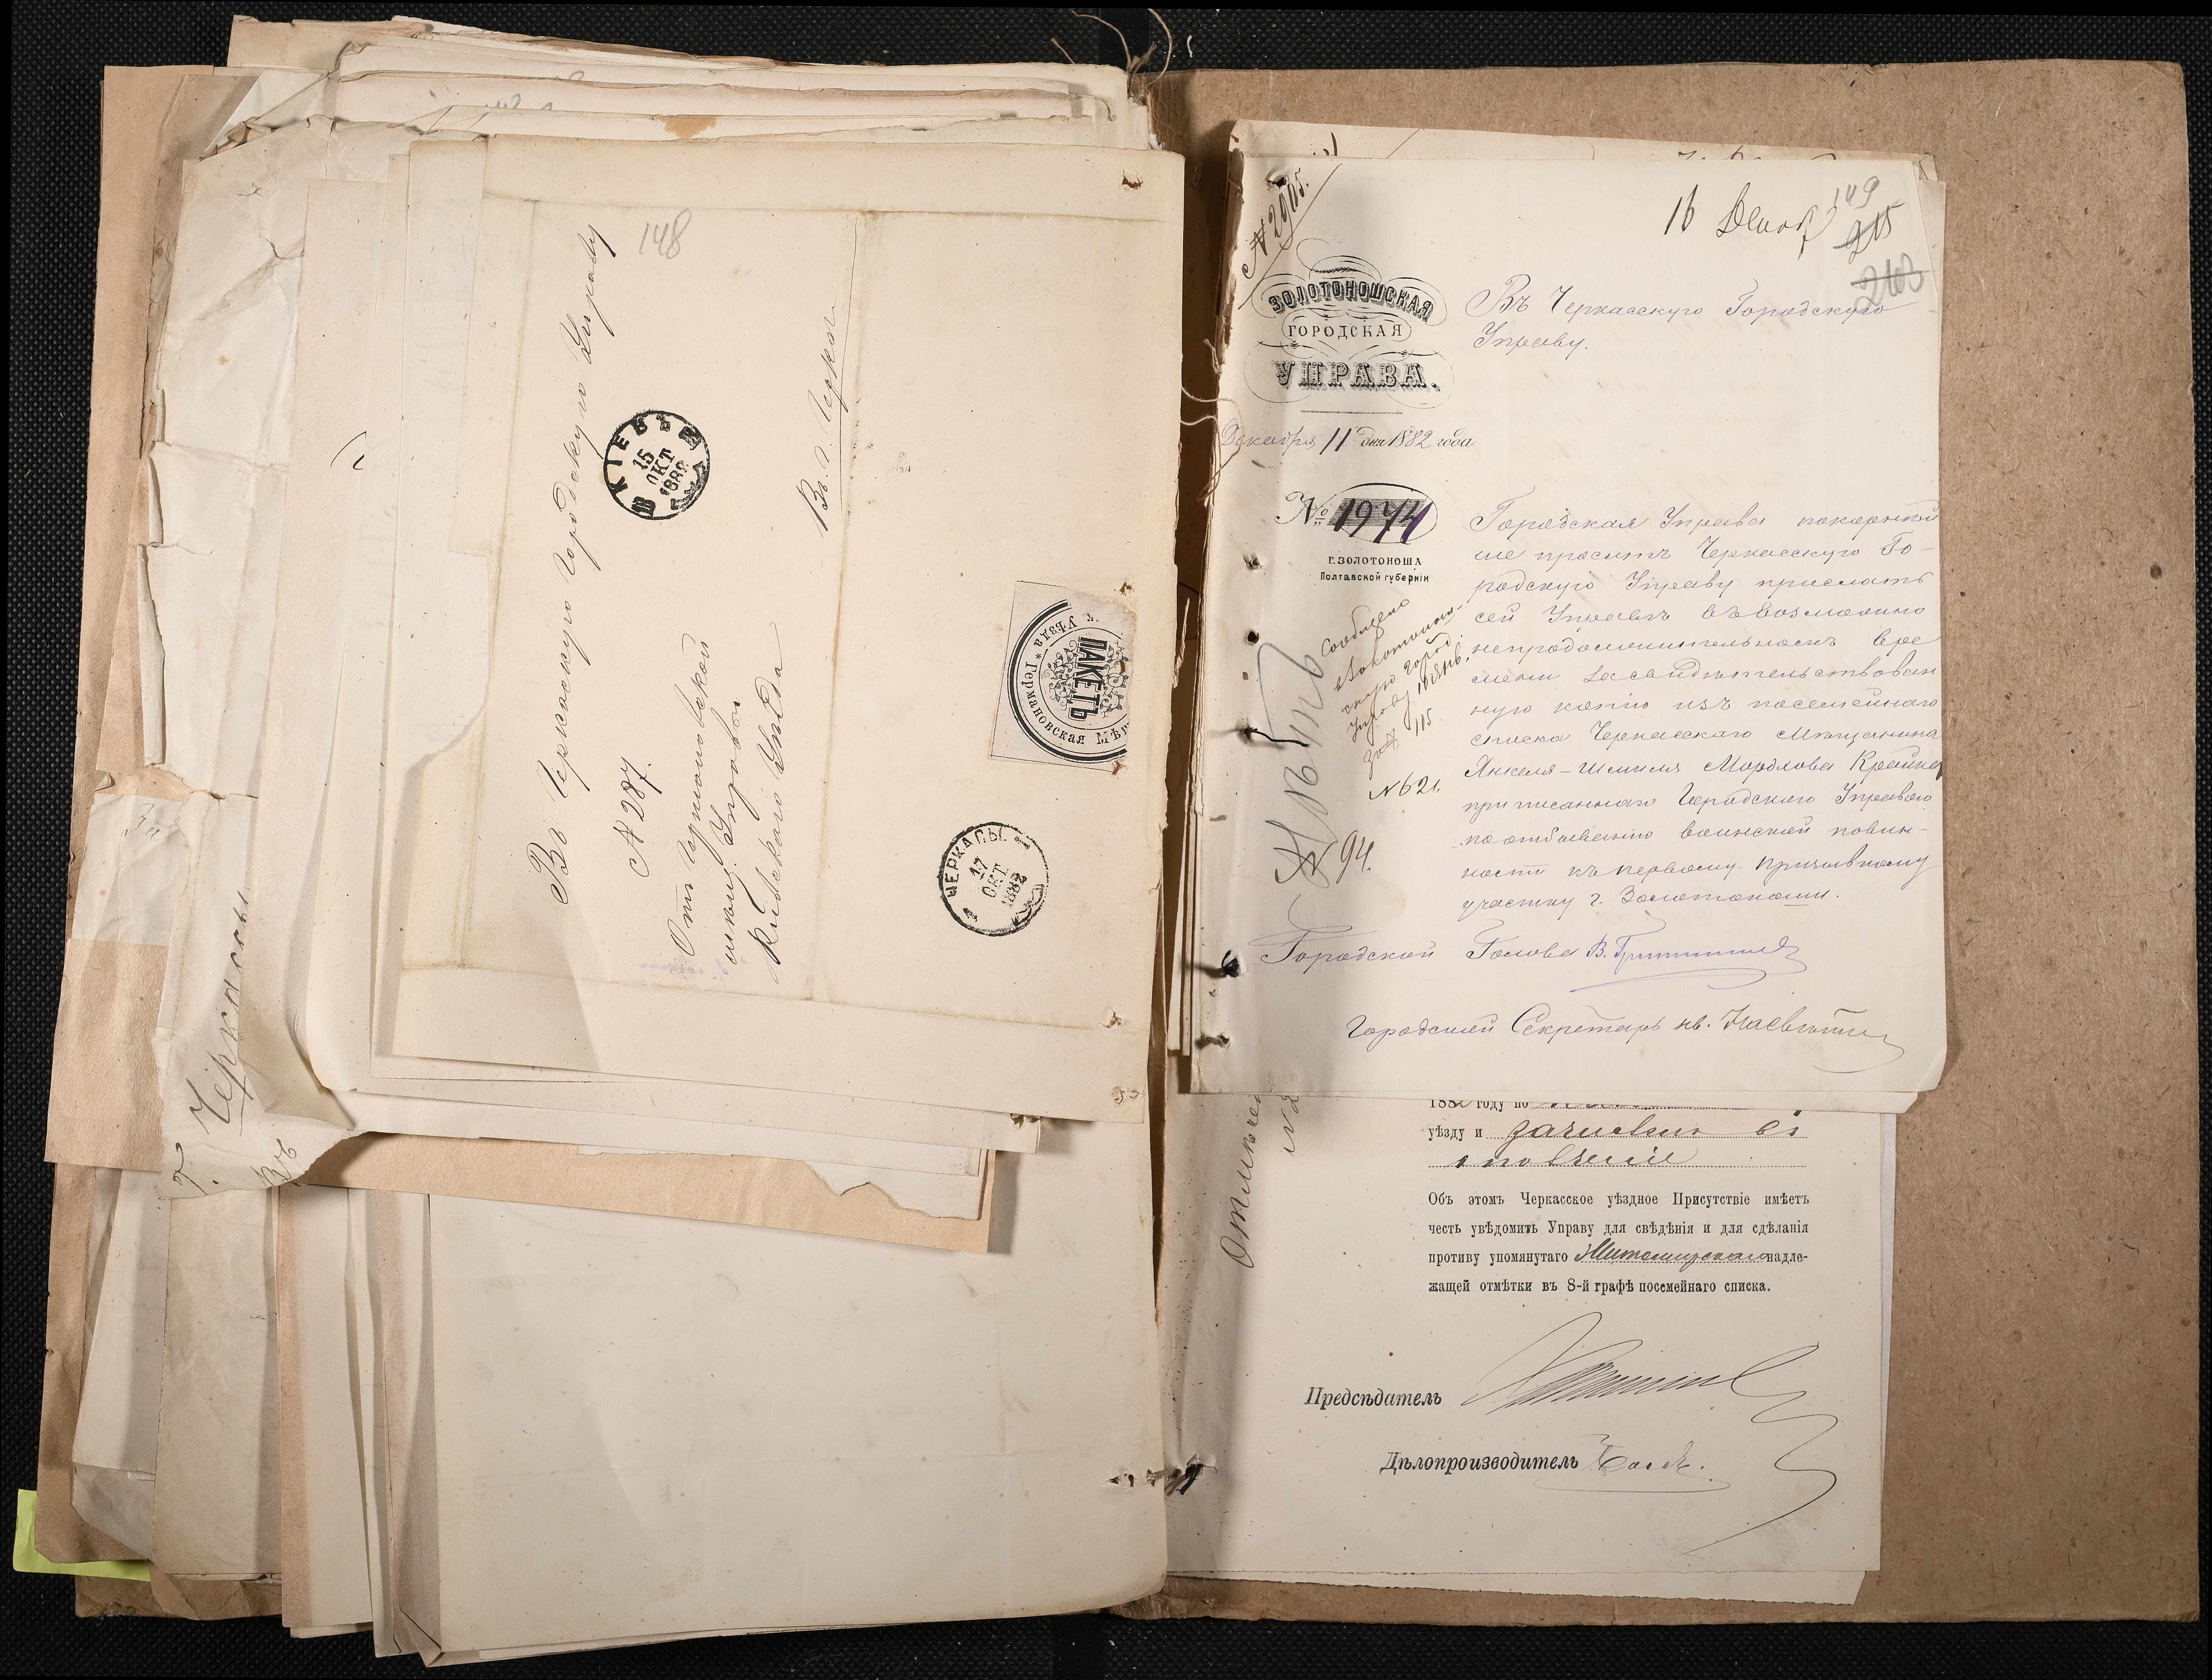 148
Въ Черкасскую Городскую Управу
КІЕВЪ
15
ОКТ
1882
№ 287.
Отъ Германовской
Мѣщ. Управы
Кіевскаго Уѣзда
Въ г. Черкассы
Уѣзда * Германовская Мѣщ
ПАКЕТЪ
ЧЕРКАСЫ
17
ОКТ
1882
Г. Черкассы
Въ
№ 2905.
16 Декаб
149
215
ЗОЛОТОНОШСКАЯ
ГОРОДСКАЯ
УПРАВА.
Въ Черкасскую Городскую
Управу.
Декабря 11 дня 1882 года
№ 1974
Г. ЗОЛОТОНОША
Полтавской губерніи
Городская Управа покорнѣй
ше проситъ Черкасскую Го-
родскую Управу прислать
сей Управѣ въ возможно
непродолжительномъ вре
мени засвидѣтельствован
ную копію изъ посемейнаго
списка Черкасскаго мѣщанина
Янкеля-Шмиля Мордкова
приписаннаго Городскою Управою
по отбыванію воинской повин-
ности къ первому призывному
участку г. Золотоноши.
Сообщено
Золотонош.
скую Город.
Управу
за № 115
№ 621.
№ 94.
Городской Голова В.
Городской Секретарь
Отмѣчено
уѣзду и зачисленъ въ
ополченіе
Объ этомъ Черкасское уѣздное Присутствіе имѣетъ
честь увѣдомить Управу для свѣдѣнія и для сдѣланія
противу упомянутаго Житомирскаго надле-
жащей отмѣтки въ 8-й графѣ посемейнаго списка.
Предсѣдатель
Дѣлопроизводитель